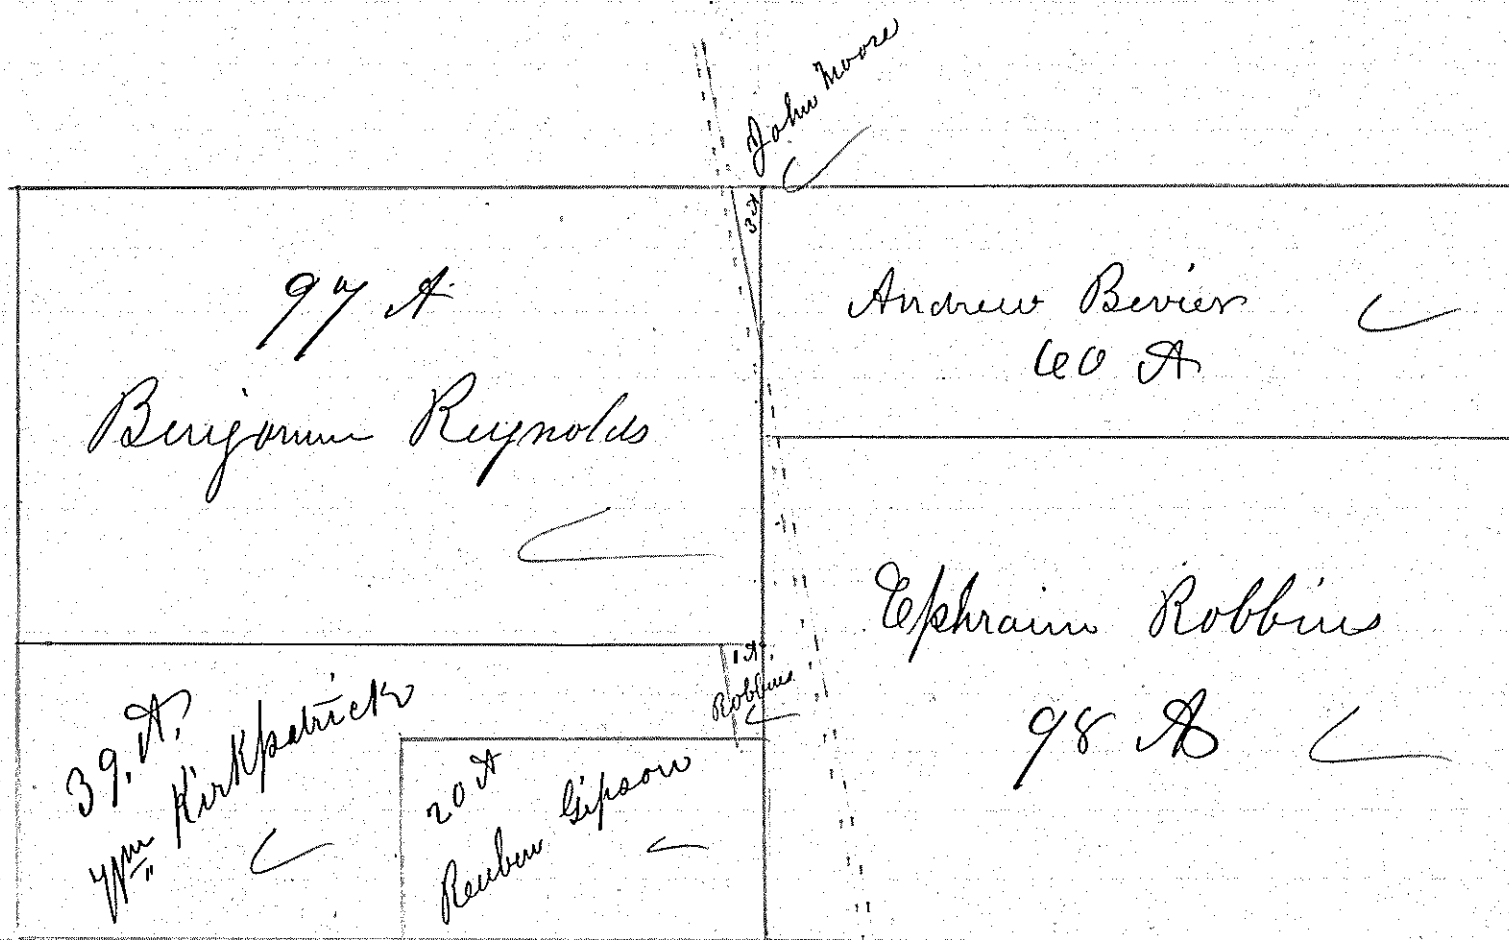 John Moore
3 A
97 A
Benjamin Reynolds
Andrew Bevier
60 A
Ephraim Robbins
98 A
1 A.
Robbins
39. A.
Wm Kirkpatrick
20 A
Reuben Gipson